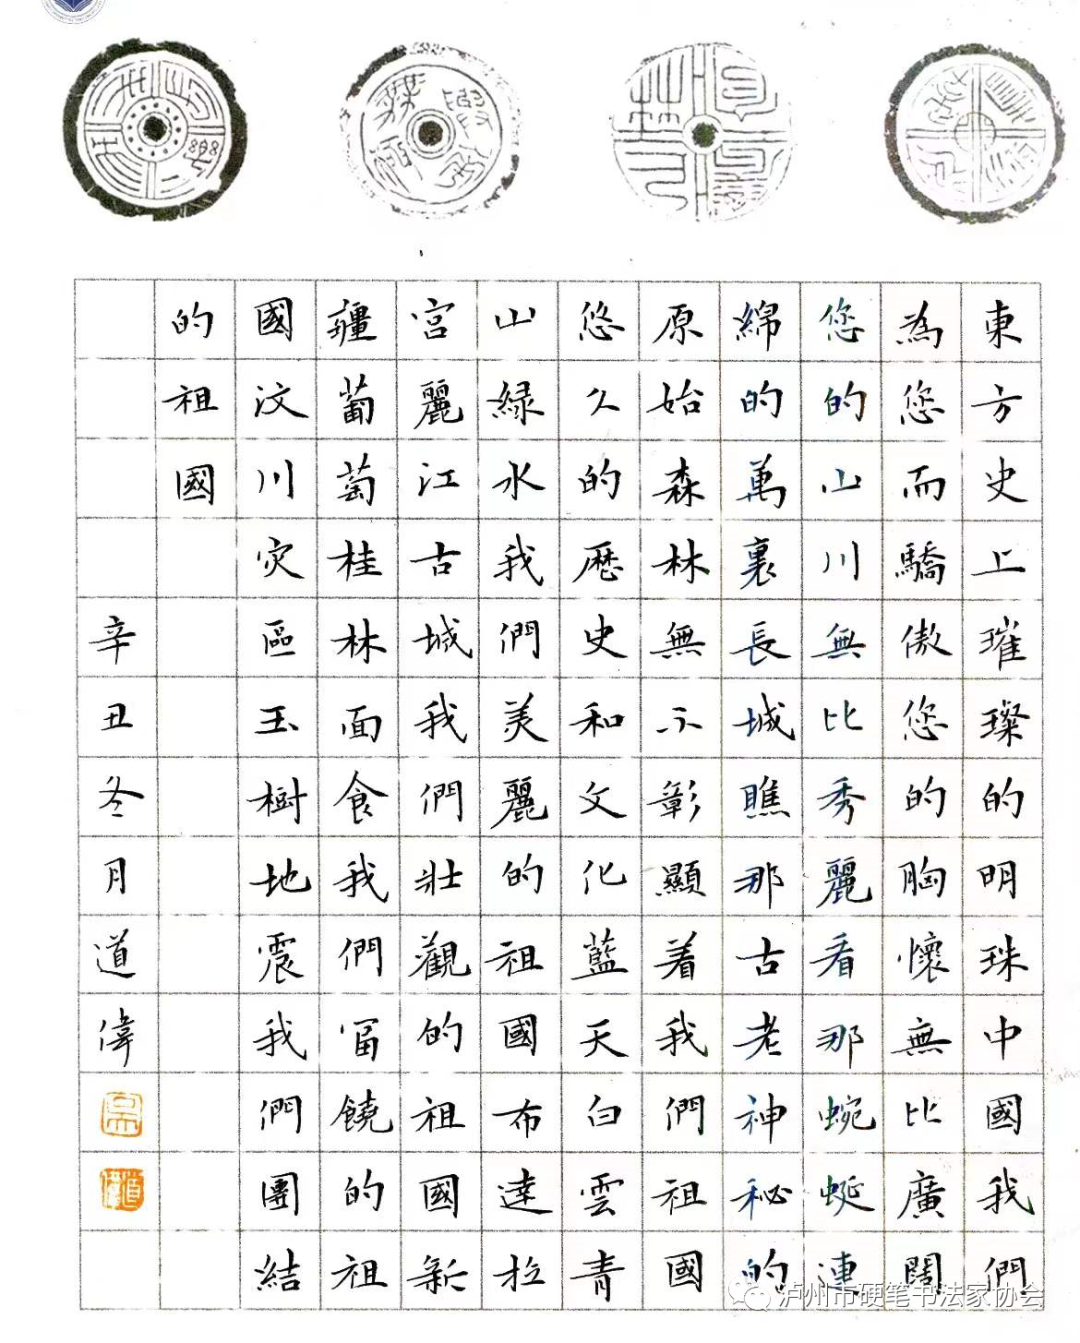 東方史上璀璨的明珠中國我們
為您而驕傲您的胸懷無比廣闊
您的山川無比秀麗看那蜿蜒連
綿的萬裏長城瞧那古老神秘的
原始森林無不彰顯着我們祖國
悠久的歷史和文化藍天白雲青
山緑水我們美麗的祖國布達拉
宮麗江古城我們壯觀的祖國新
疆葡萄桂林面食我們富饒的祖
國汶川灾區玉樹地震我們團結
的祖國
辛丑冬月道偉
泸州市硬笔书法家协会